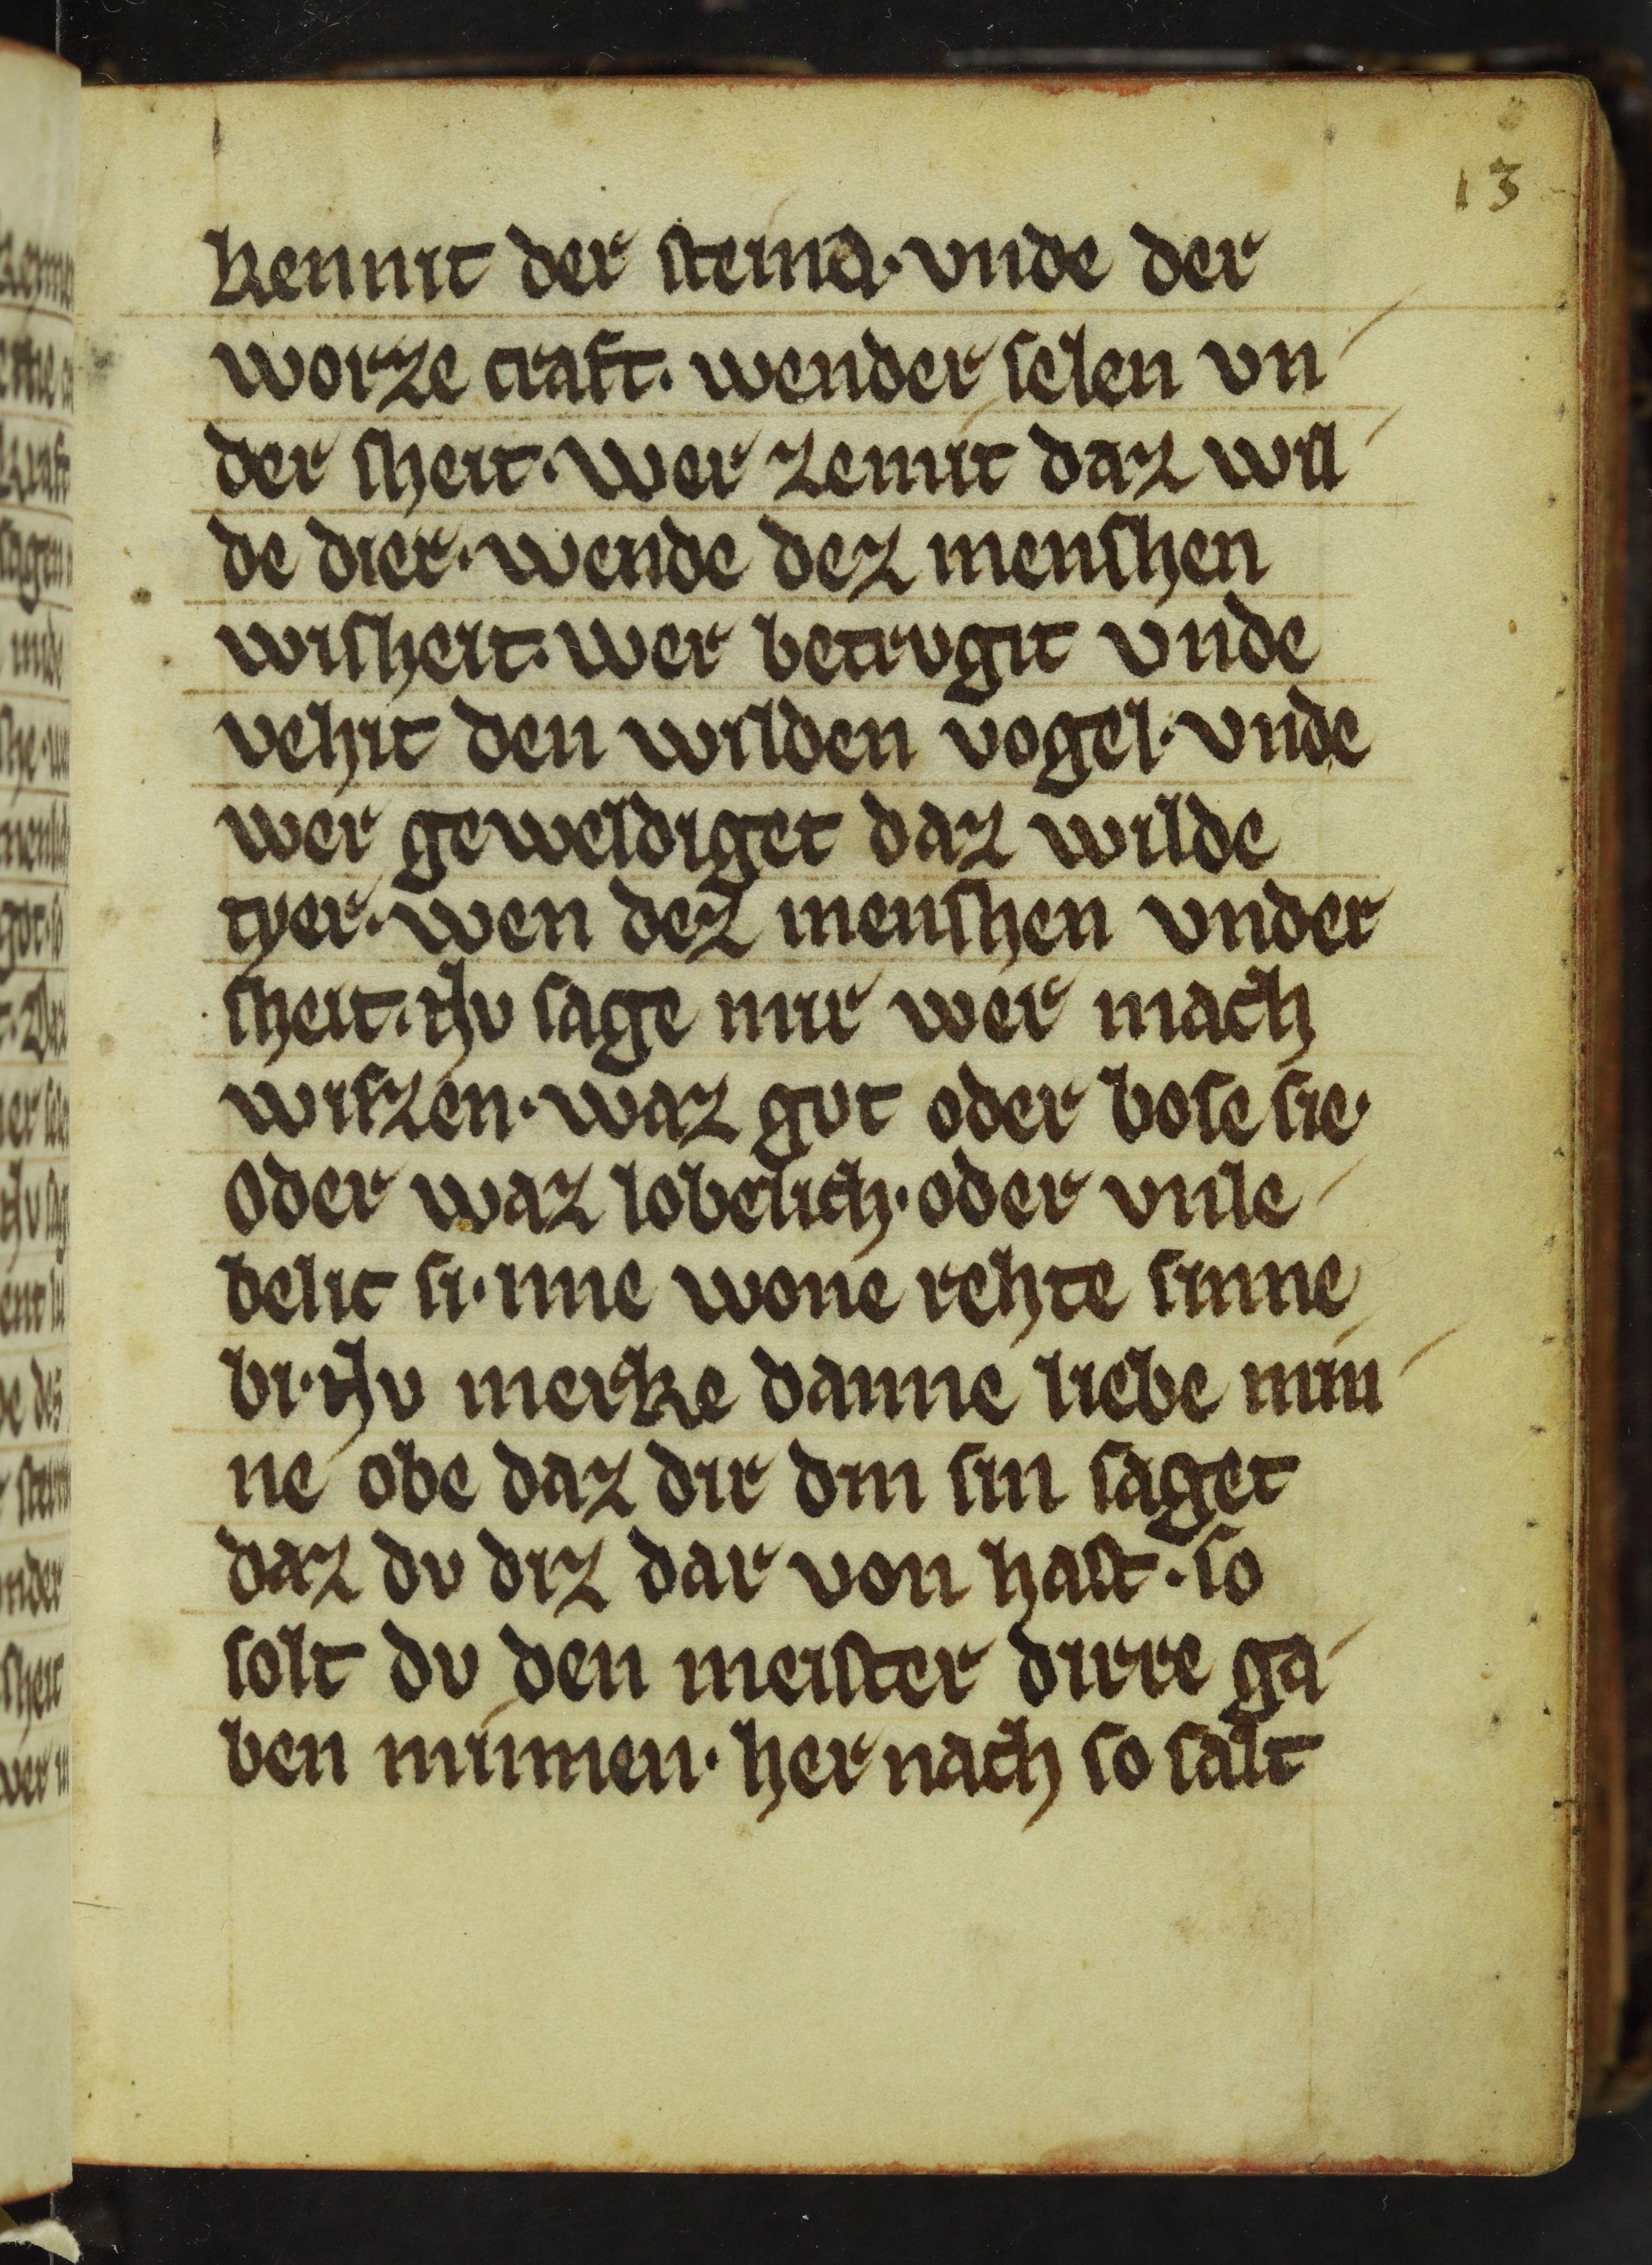 13
kennit der steina · vnde der
worze craft · wender selen vn
der sheit · wer zemit daz wil
de dier · wende dez menshen
wisheit · wer betrvgit vnde
vehit den wilden vogel · vnde
wer geweldiget daz wilde
tyer · wen dez menshen vnder
sheit · nv sage mir wer mach
wiszen · waz gvt oder bose sie ·
Oder waz lobelich · oder vnle
belic si · ime wone rehte sinne
bi · nv merke danne liebe min
ne obe daz dir din sin saget
daz dv diz dar von hast · so
solt dv den meister dirre ga
ben minnen · her nach so salt